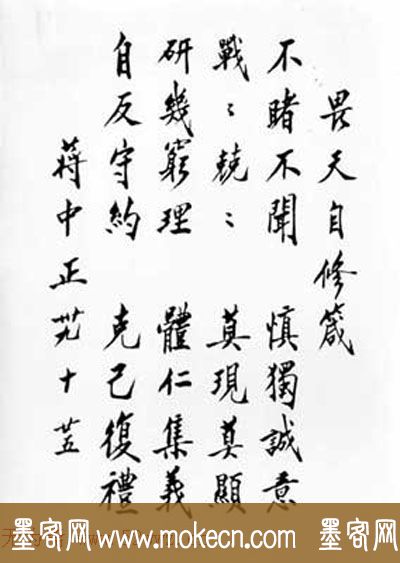 畏天自修箴
不睹不聞　慎獨誠意
戰〻兢〻　莫現莫顯
研幾窮理　體仁集義
自反守約　克己復禮
蔣中正卅九十廿五
墨客网 www.mokecn.com 墨客网